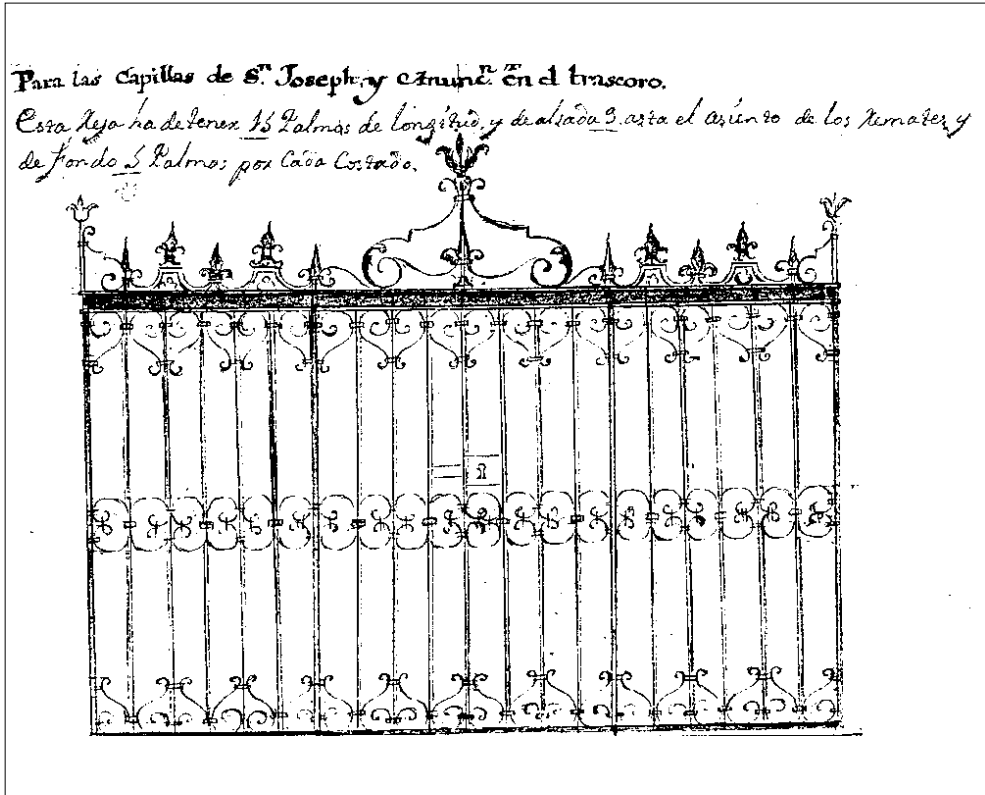 Para las Capillas de S.n Joseph, y Anunc.n en el trascoro.
Esta Rexa ha de tener 15 Palmos de longitud, y de alsada 9 asta el asiento de los Remates, y
de fondo 5 Palmos por Cada Costado.
1